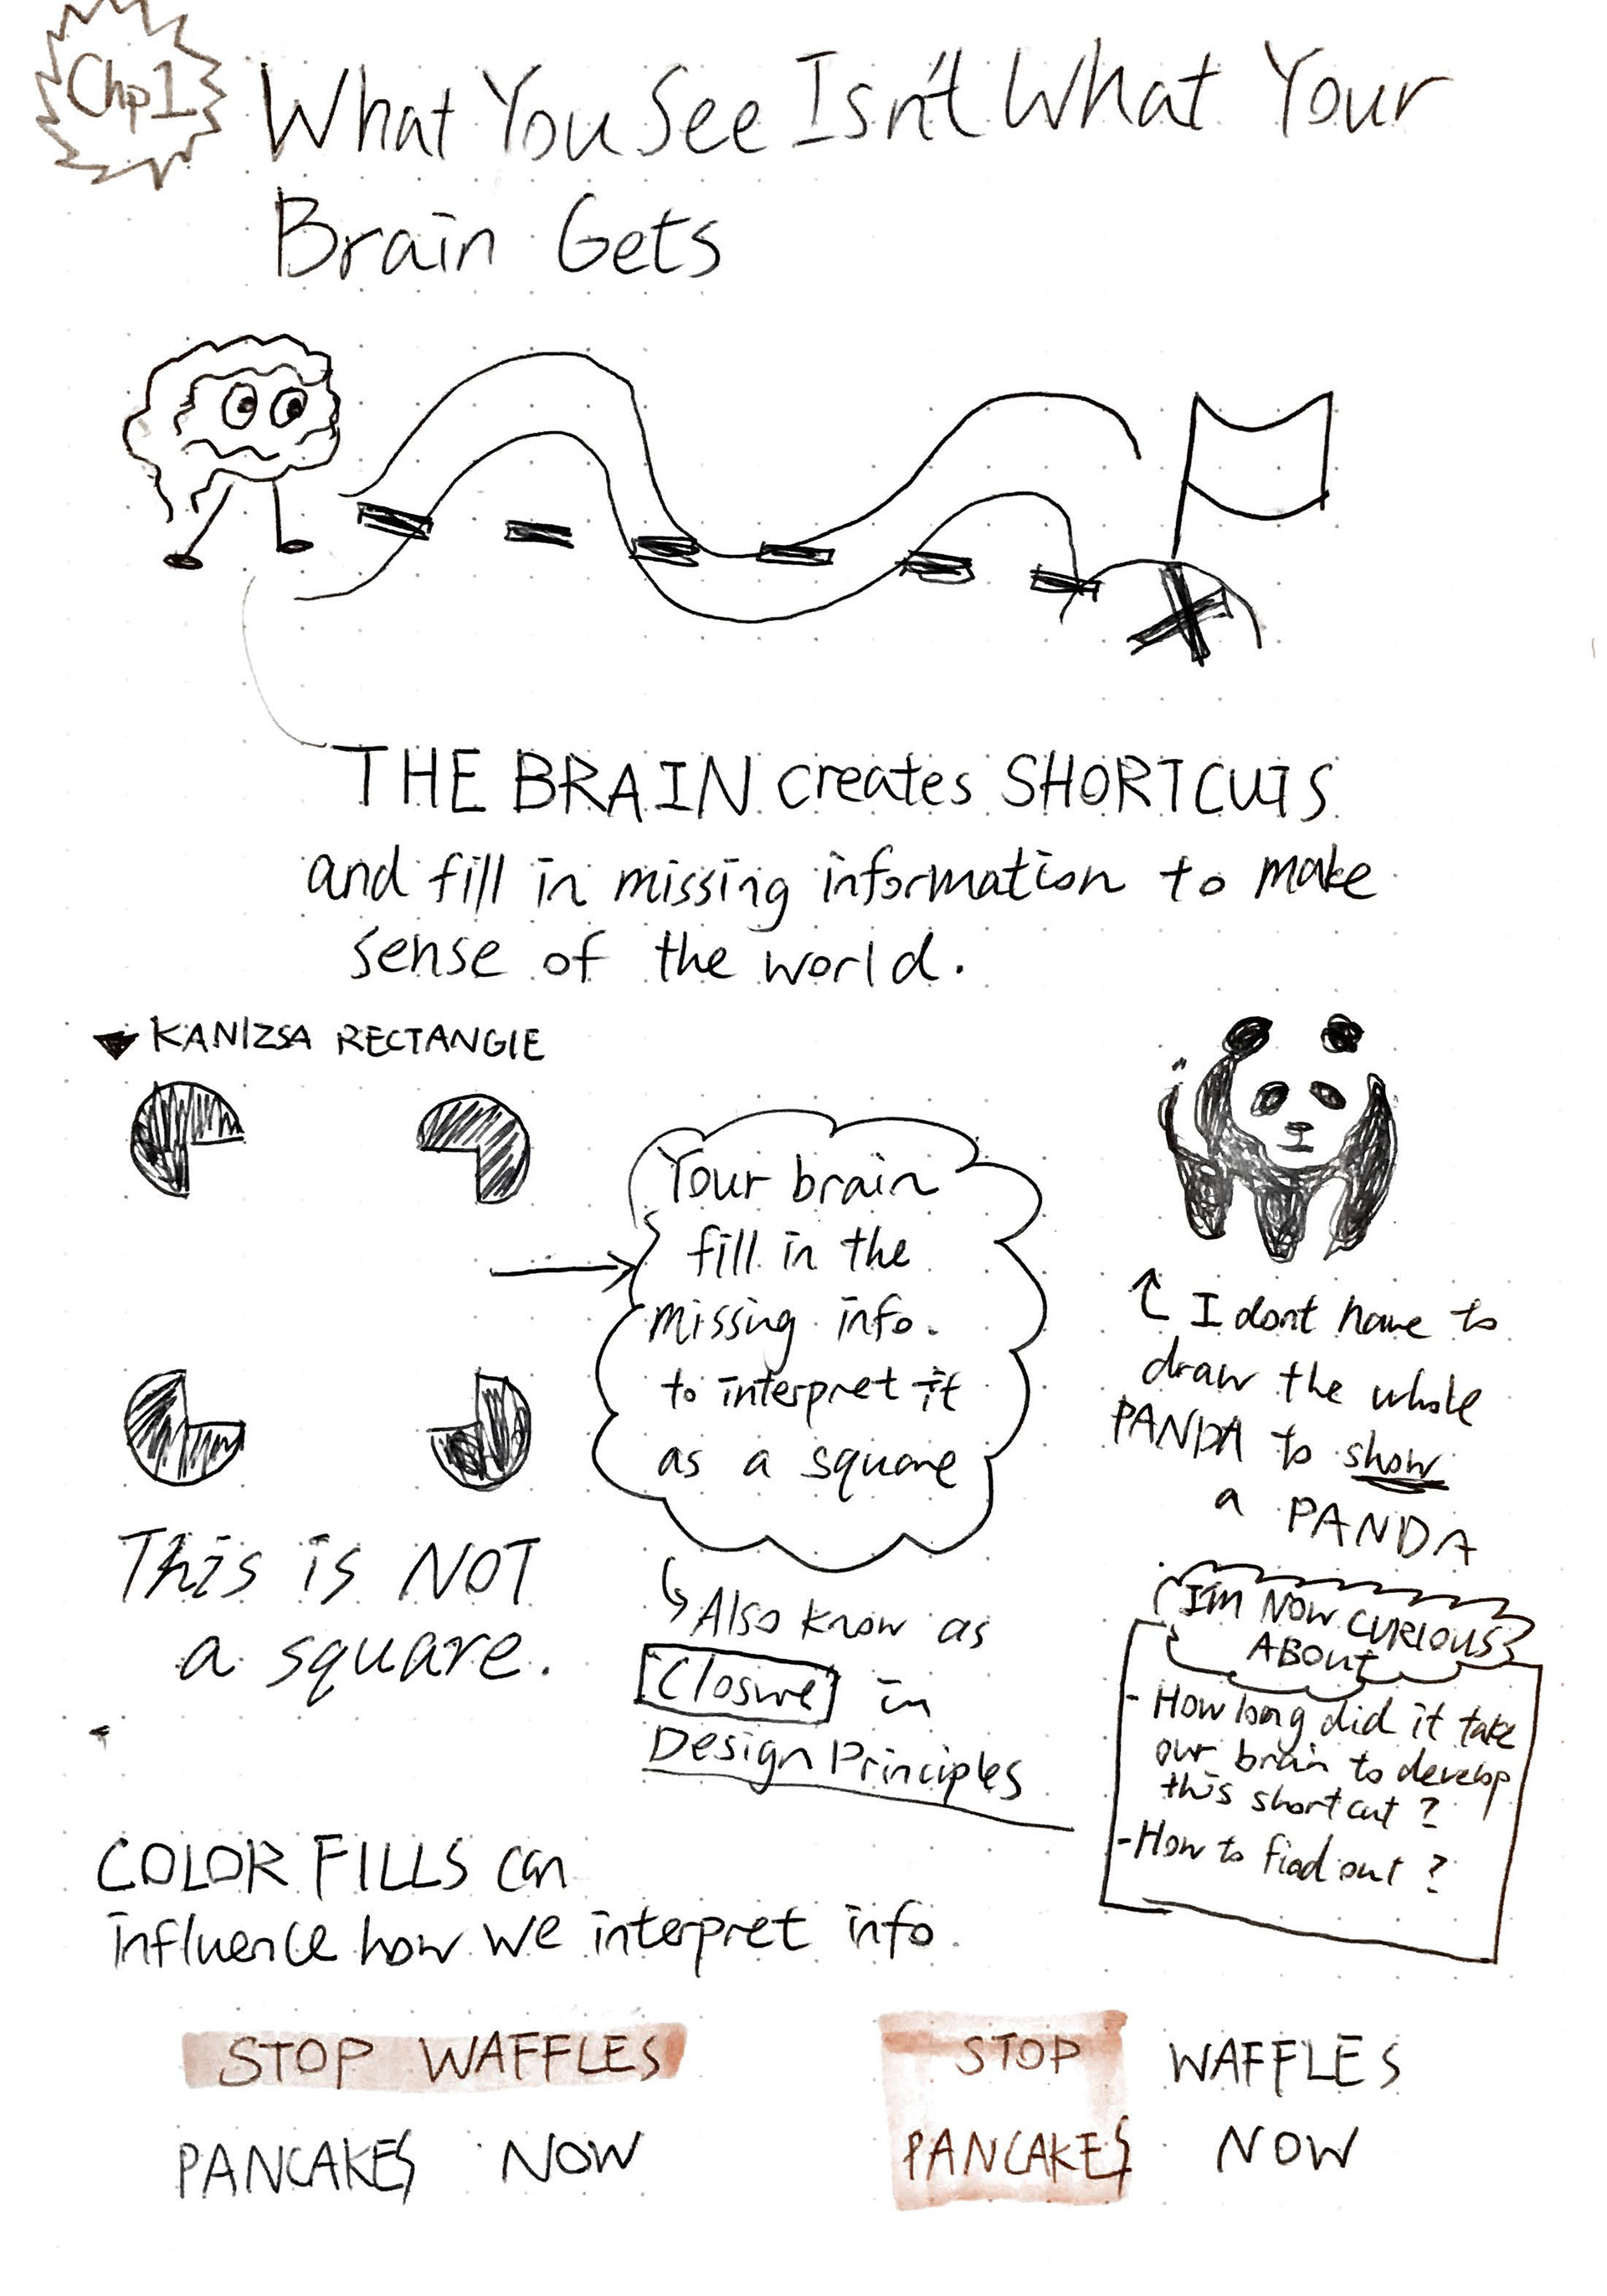 Chp1
What You See Isn't What Your
Brain Gets
THE BRAIN creates SHORTCUTS
and fill in missing information to make
sense of the world.
KANIZSA RECTANGLE
Your brain
fill in the
missing info.
to interpret it
as a square
This is NOT
a square.
Also know as
Closure in
Design Principles
I dont have to
draw the whole
PANDA to show
a PANDA
I'M NOW CURIOUS
ABOUT
- How long did it take
our brain to develop
this shortcut?
- How to find out?
COLOR FILLS can
influence how we interpret info.
STOP WAFFLES
PANCAKES NOW
STOP WAFFLES
PANCAKES NOW